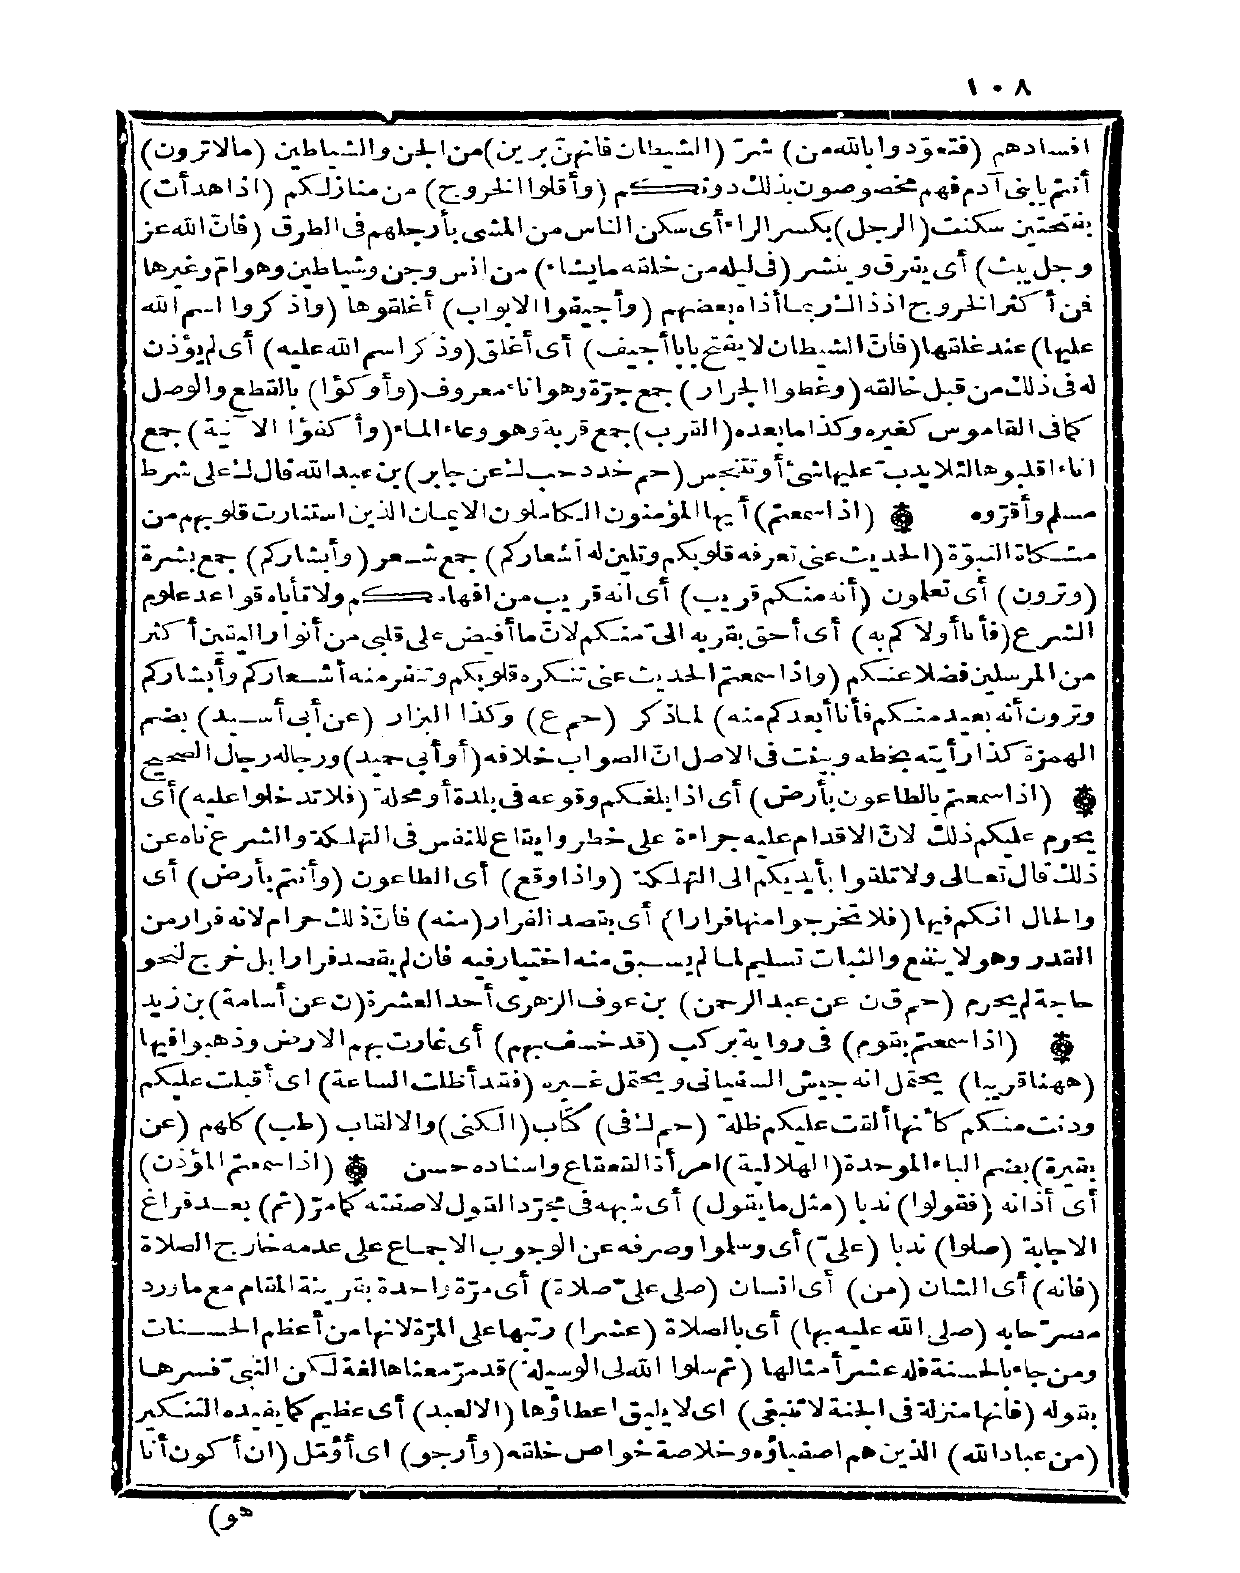 ١٠٨
افسادهم (فتعوّذوا بالله من) شرّ (الشيطان فانهنّ يرين) من الجن والشياطين (مالا ترون)
أنتم يابنى آدم فهم مخصوصون بذلك دونكم (وأقلوا الخروج) من منازلكم (اذا هدأت)
بفتحتين سكنت (الرجل) بكسر الراء أى سكن الناس من المشى بأرجلهم فى الطرق (فانّ الله عز
وجل يبث) أى يفرق وينشر (فى ليله من خلقه مايشاء) من انس وجن وشياطين وهوام وغيرها
فمن أكثر الخروج اذ ذاك ربما أذاه بعضهم (وأجيفوا الابواب) أغلقوها (واذكروا اسم الله
عليها) عند غلقها (فانّ الشيطان لا يفتح بابا أجيف) أى أغلق (وذكر اسم الله عليه) أى لم يؤذن
له فى ذلك من قبل خالقه (وغطوا الجرار) جمع جرّة وهو اناء معروف (وأوكؤا) بالقطع والوصل
كما فى القاموس كغيره وكذا مابعده (القرب) جمع قربة وهو وعاء الماء (وأكفؤا الآنية) جمع
اناء اقلبوها لئلا يدبّ عليها شئ أو تتنجس (حم خد د حب ك عن جابر) بن عبد الله قال ك على شرط
مسلم وأقرّوه ۞ (اذا سمعتم) أيها المؤمنون الكاملون الايمان الذين استنارت قلوبهم من
مشكاة النبوّة (الحديث عنى تعرفه قلوبكم وتلين له أشعاركم) جمع شعر (وأبشاركم) جمع بشرة
(وترون) أى تعلمون (أنه منكم قريب) أى انه قريب من افهامكم ولا تأباه قواعد علوم
الشرع (فأنا أولاكم به) أى أحق بقربه الىّ منكم لانّ ما أفيض على قلبى من أنوار اليقين أكثر
من المرسلين فضلا عنكم (واذا سمعتم الحديث عنى تنكره قلوبكم وتنفر منه أشعاركم وأبشاركم
وترون أنه بعيد منكم فأنا أبعدكم منه) لما ذكر (حم ع) وكذا البزار (عن أبى أسيد) بضم
الهمزة كذا رأيته بخطه وبينت فى الاصل انّ الصواب خلافه (أو أبى حميد) ورجاله رجال الصحيح
۞ (اذا سمعتم بالطاعون بأرض) أى اذا بلغكم وقوعه فى بلدة أو محلة (فلا تدخلوا عليه) أى
يحرم عليكم ذلك لانّ الاقدام عليه جراءة على خطر وايقاع للنفس فى التهلكة والشرع ناه عن
ذلك قال تعالى ولا تلقوا بأيديكم الى التهلكة (واذا وقع) أى الطاعون (وأنتم بأرض) أى
والحال انكم فيها (فلا تخرجوا منها فرارا) أى بقصد الفرار (منه) فانّ ذلك حرام لانه فرار من
القدر وهو لا ينفع والثبات تسليم لما لم يسبق منه اختيار فيه فان لم يقصد فرارا بل خرج لنحو
حاجة لم يحرم (حم ق ن عن عبد الرحمن) بن عوف الزهرى أحد العشرة (ن عن أسامة) بن زيد
۞ (اذا سمعتم بقوم) فى رواية بركب (قد خسف بهم) أى غارت بهم الارض وذهبوا فيها
(ههنا قريبا) يحتمل انه جيش السفيانى ويحتمل غيره (فقد أظلت الساعة) اى أقبلت عليكم
ودنت منكم كأنها ألقت عليكم ظلة (حم ك فى) كتاب (الكنى) والالقاب (طب) كلهم (عن
بقيرة) بضم الباء الموحدة (الهلالية) امرأة القعقاع واسناده حسن ۞ (اذا سمعتم المؤذن)
أى أذانه (فقولوا) ندبا (مثل ما يقول) أى شبهه فى مجرّد القول لا صفته كما مرّ (ثم) بعد فراغ
الاجابة (صلوا) ندبا (علىّ) أى وسلموا وصرفه عن الوجوب الاجماع على عدمه خارج الصلاة
(فانه) أى الشان (من) أى انسان (صلى علىّ صلاة) أى مرّة واحدة بقرينة المقام مع ما ورد
مصرّحا به (صلى الله عليه بها) أى بالصلاة (عشرا) رتبها على المرّة لانها من أعظم الحسنات
ومن جاء بالحسنة فله عشر أمثالها (ثم سلوا الله لى الوسيلة) قد مرّ معناها لغة لكن النبىّ فسرها
بقوله (فانها منزلة فى الجنة لا تنبغى) اى لا يليق اعطاؤها (الا لعبد) أى عظيم كما يفيده التنكير
(من عباد الله) الذين هم اصفياؤه وخلاصة خواص خلقه (وأرجو) اى أؤمّل (ان أكون أنا
هو)